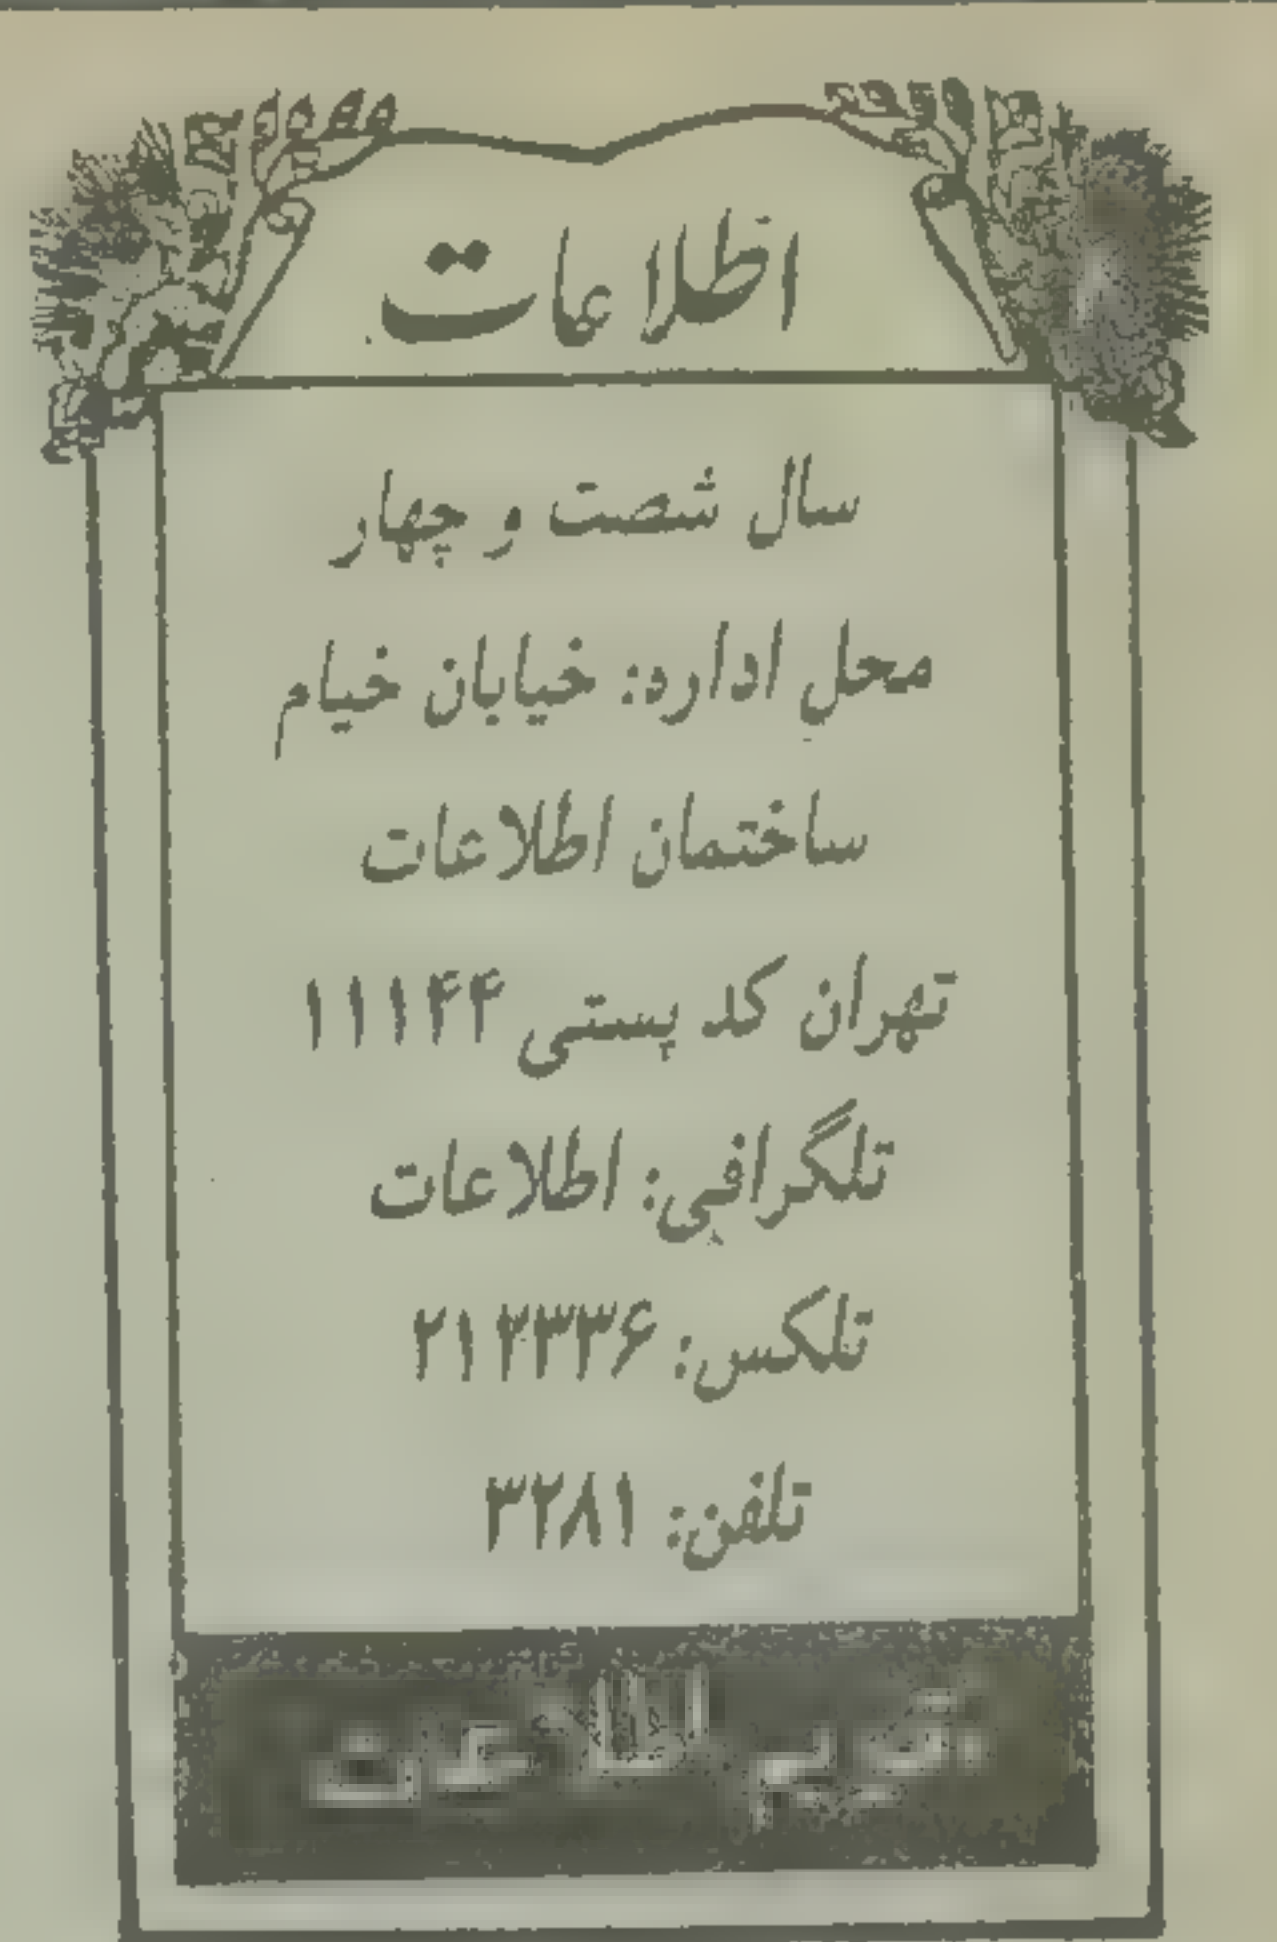 اطلاعات
سال شصت و چهار
محل اداره: خیابان خیام
ساختمان اطلاعات
تهران کد پستی ۱۱۱۴۴
تلگرافی: اطلاعات
تلکس: ۲۱۲۳۳۶
تلفن: ۳۲۸۱
تقویم اطلاعات